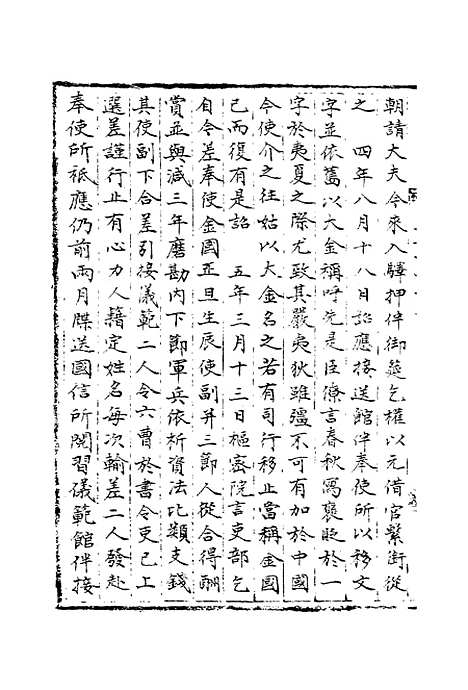 朝請大夫今來入驛押伴御筵乞權以元借官繫銜從
之　四年八月十八日詔應接送館伴奉使所以移文
字並依舊以大金稱呼先是臣僚言春秋寓褒貶於一
字於夷夏之際尤致其嚴夷狄雖彊不可有加於中國
今使介之往姑以大金名之若有司行移止當稱金國
已而復有是詔　五年三月十三日樞密院言吏部乞
自今差奉使金國正旦生辰使副并三節人從合得酬
賞並與減三年磨勘內下節軍兵依折資法比類支錢
其使副下合差引接儀範二人令六曹於書令史已上
選差謹行止有心力人籍定姓名每次輪差二人發赴
奉使所祗應仍前兩月牒送國信所閱習儀範館伴接